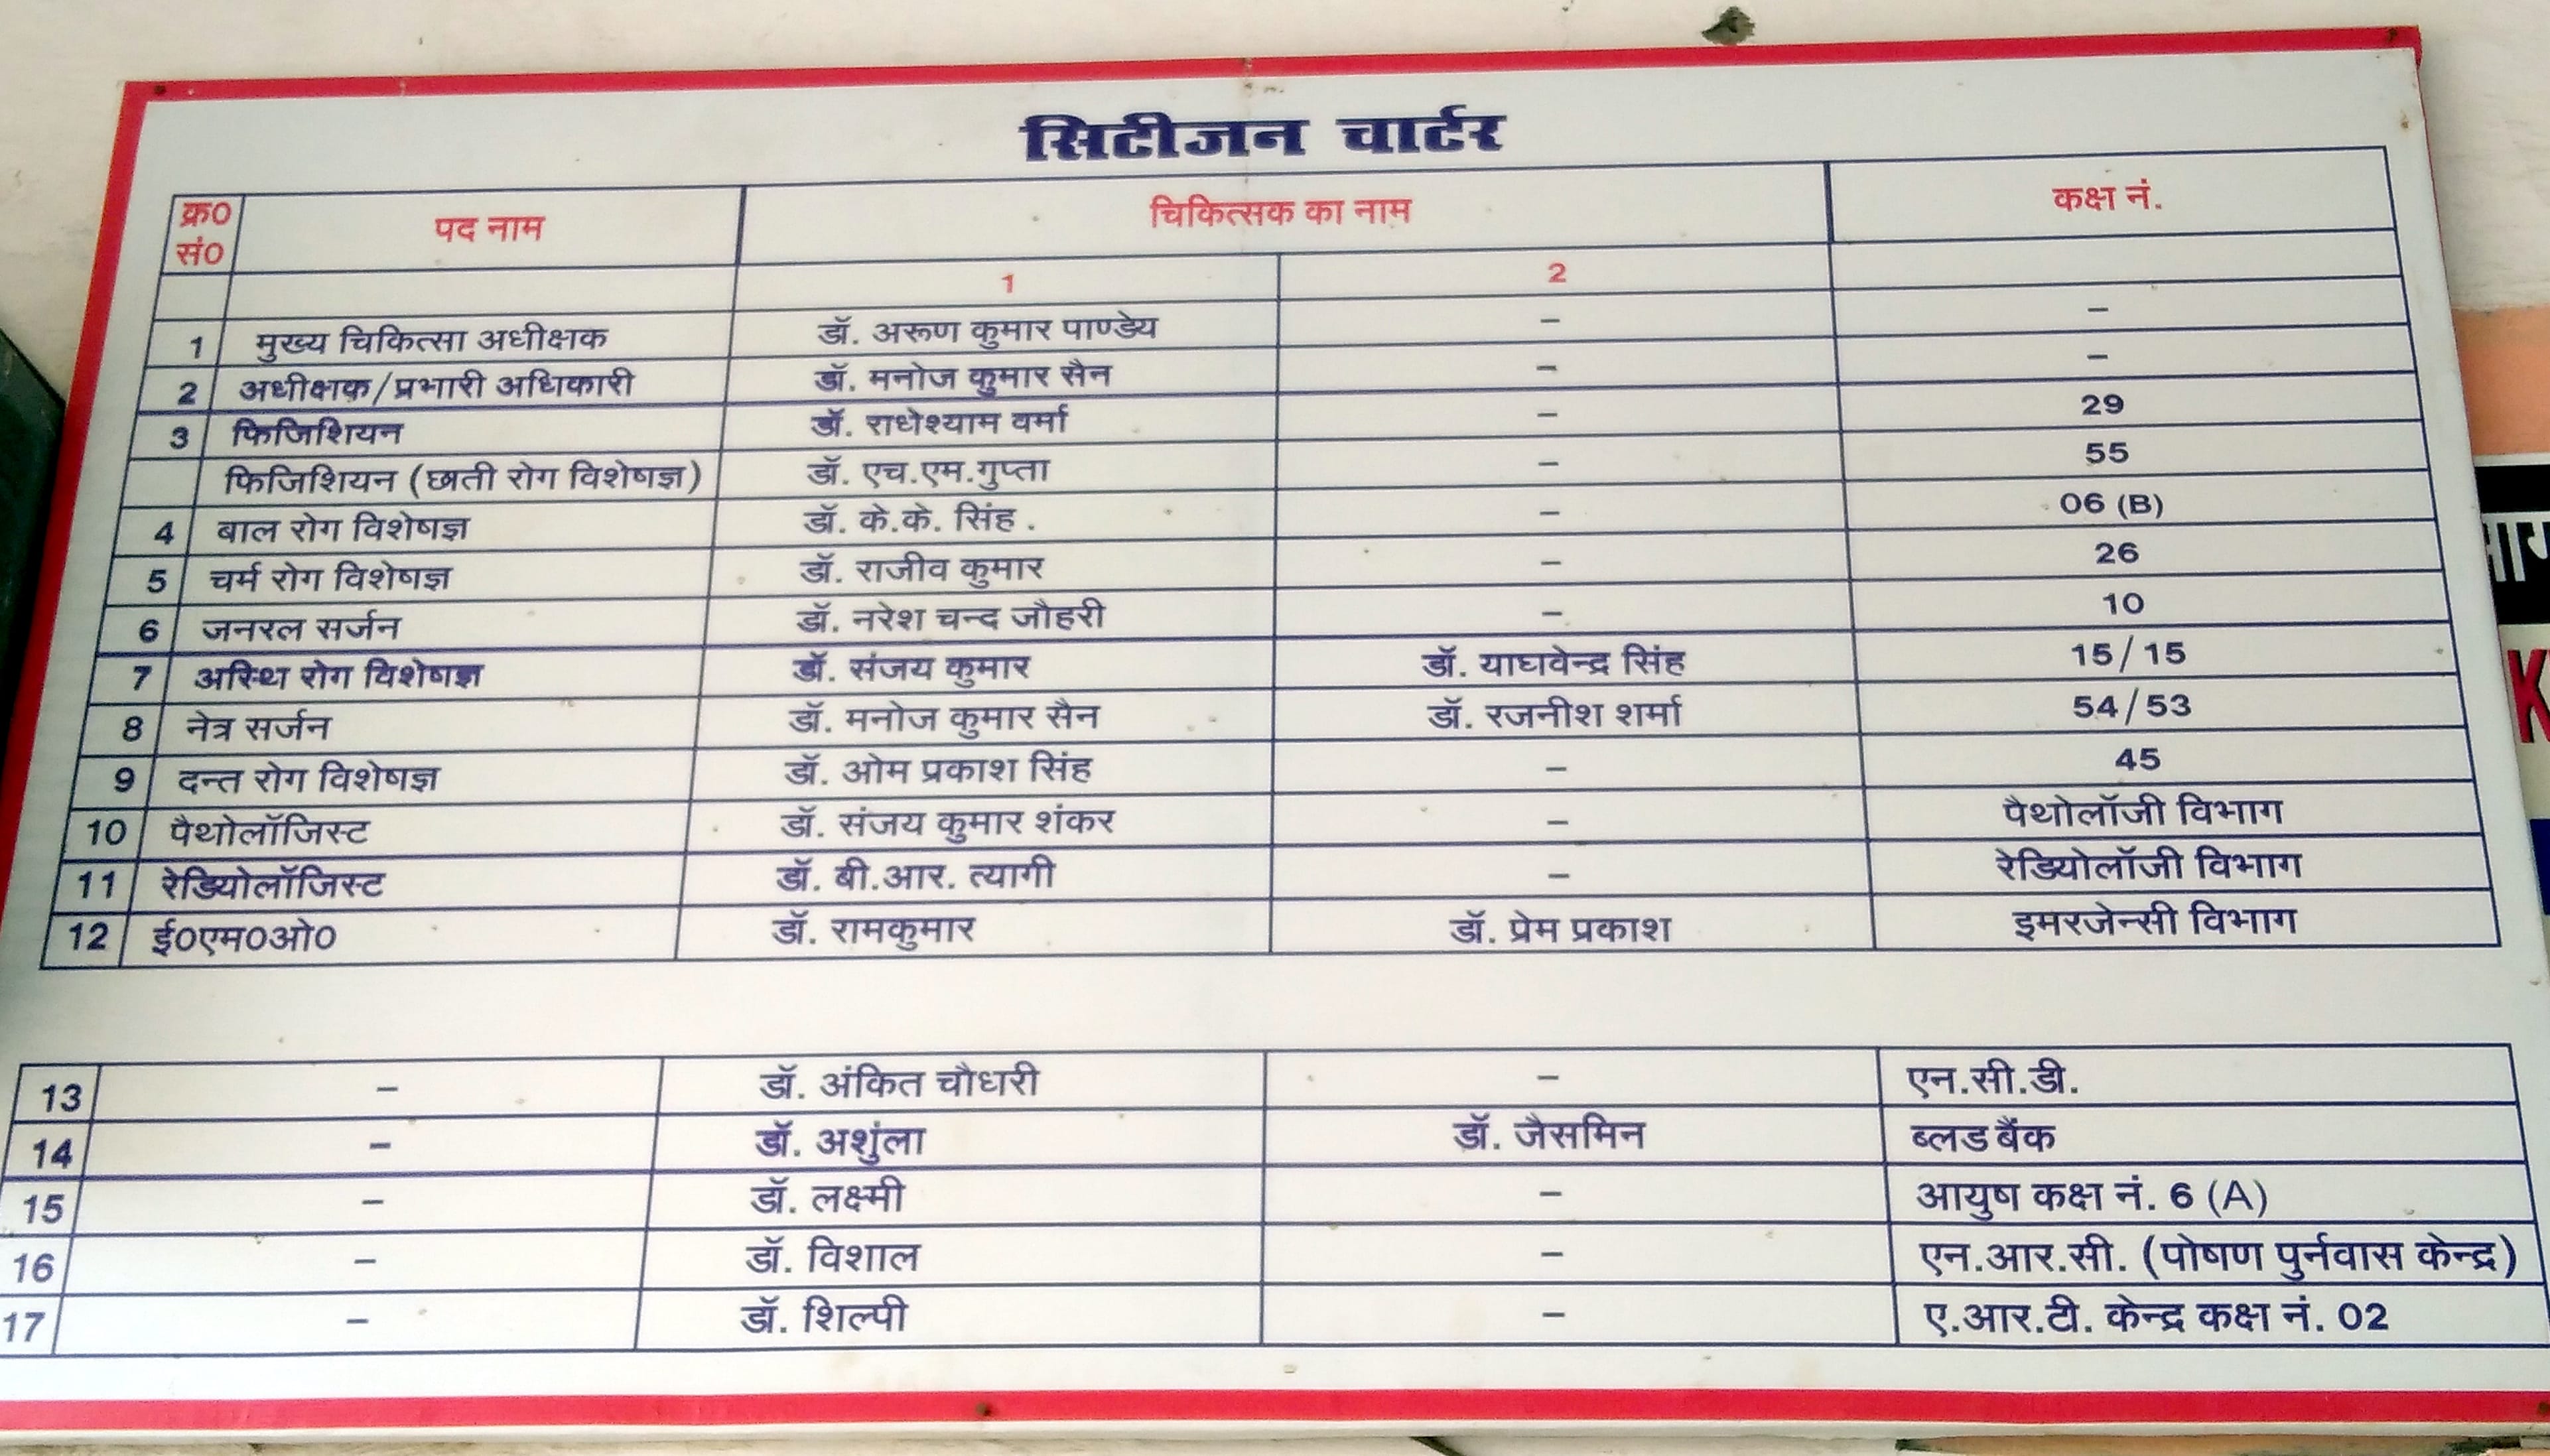 सिटीजन चार्टर
क्र0 सं0 पद नाम चिकित्सक का नाम कक्ष नं.
1 2
1 मुख्य चिकित्सा अधीक्षक डॉ. अरूण कुमार पाण्डेय – –
2 अधीक्षक/प्रभारी अधिकारी डॉ. मनोज कुमार सैन – –
3 फिजिशियन डॉ. राधेश्याम वर्मा – 29
फिजिशियन (छाती रोग विशेषज्ञ) डॉ. एच.एम.गुप्ता – 55
4 बाल रोग विशेषज्ञ डॉ. के.के. सिंह . – 06 (B)
5 चर्म रोग विशेषज्ञ डॉ. राजीव कुमार – 26
6 जनरल सर्जन डॉ. नरेश चन्द जौहरी – 10
7 अस्थि रोग विशेषज्ञ डॉ. संजय कुमार डॉ. याघवेन्द्र सिंह 15/15
8 नेत्र सर्जन डॉ. मनोज कुमार सैन डॉ. रजनीश शर्मा 54/53
9 दन्त रोग विशेषज्ञ डॉ. ओम प्रकाश सिंह – 45
10 पैथोलॉजिस्ट डॉ. संजय कुमार शंकर – पैथोलॉजी विभाग
11 रेडियोलॉजिस्ट डॉ. बी.आर. त्यागी – रेडियोलॉजी विभाग
12 ई0एम0ओ0 डॉ. रामकुमार डॉ. प्रेम प्रकाश इमरजेन्सी विभाग
13 – डॉ. अंकित चौधरी – एन.सी.डी.
14 – डॉ. अशुंला डॉ. जैसमिन ब्लड बैंक
15 – डॉ. लक्ष्मी – आयुष कक्ष नं. 6 (A)
16 – डॉ. विशाल – एन.आर.सी. (पोषण पुर्नवास केन्द्र)
17 – डॉ. शिल्पी – ए.आर.टी. केन्द्र कक्ष नं. 02